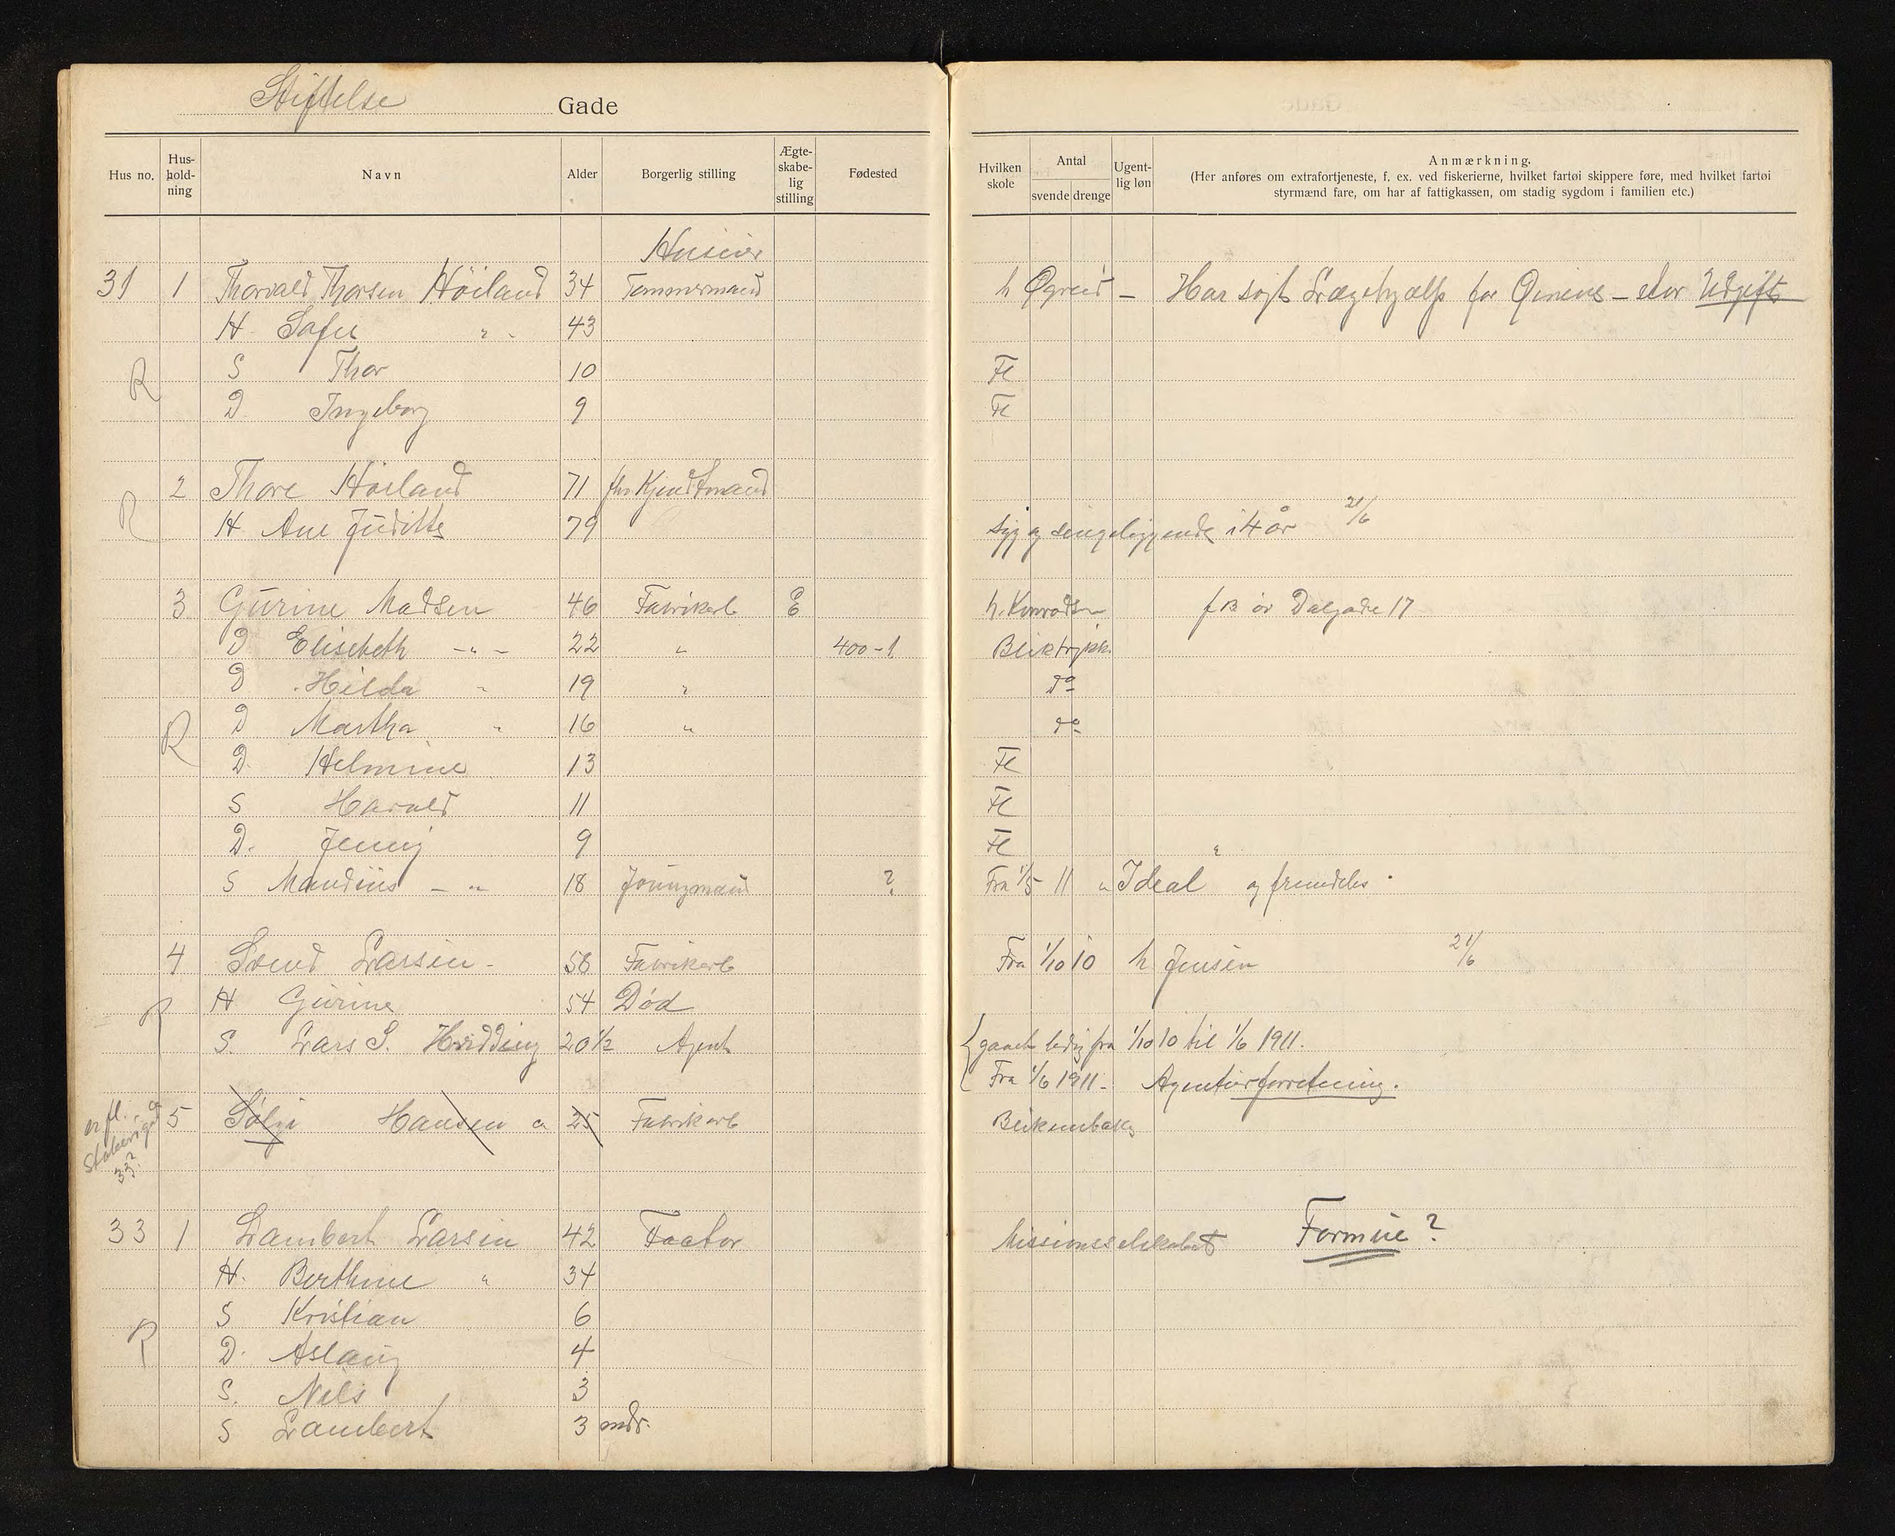 Stiftelse Gade
Hus no. Hus-hold-ning Navn Alder Borgerlig stilling Ægte-skabe-lig stilling Fødested Hvilken skole Antal svende drenge Ugent-lig løn Anmærkning.
(Her anføres om extrafortjeneste, f. ex. ved fiskerierne, hvilket fartøi skippere føre, med hvilket fartøi
styrmænd fare, om har af fattigkassen, om stadig sygdom i familien etc.)
Huseier
31 1 Thorvald Thorsen Höiland 34 Tømmermand h Øgreid — Har søgt Lægehjælp for Øinene — stor Udgift
H. Sofie " 43
R S Thor 10 Fl
D. Ingeborg 9 Fl
2 Thore Höiland 71 fhv Kjendtmand
R H Ane Juditte 79 syg og sengeliggende i 4 år 21/6
3 Gurine Madsen 46 Fabrikarb E h. Konradsen f B öv Dalgade 17
D Elisebeth — " — 22 " 400-1 Bliktrykk.
D Hilda " 19 " do
R D Martha " 16 " do
D. Helmine 13 Fl
S Harald 11 Fl
D. Jenny 9 Fl
S Mandius — " 18 Joungmand ? Fra 1/5 11 " Ideal " og fremdeles.
4 Svend Larsen - 58 Fabrikarb Fra 1/10 10 h Jensen 21/6
R H Gurine 54 Död
S. Lars S. Hidding 20 1/2 Agent gaaet ledig fra 1/10 10 til 1/6 1911.
Fra 1/6 1911. Agenturforretning.
er fl. 5 Hansen 25 Fabrikarb Blikemball
33?
33 1 Lambert Larsen 42 Factor Missionsselskabet Formue?
H. Berthine " 34
S Kristian 6
R D. Aslaug 4
S. Nils 3
S Lambert 3 mdr.